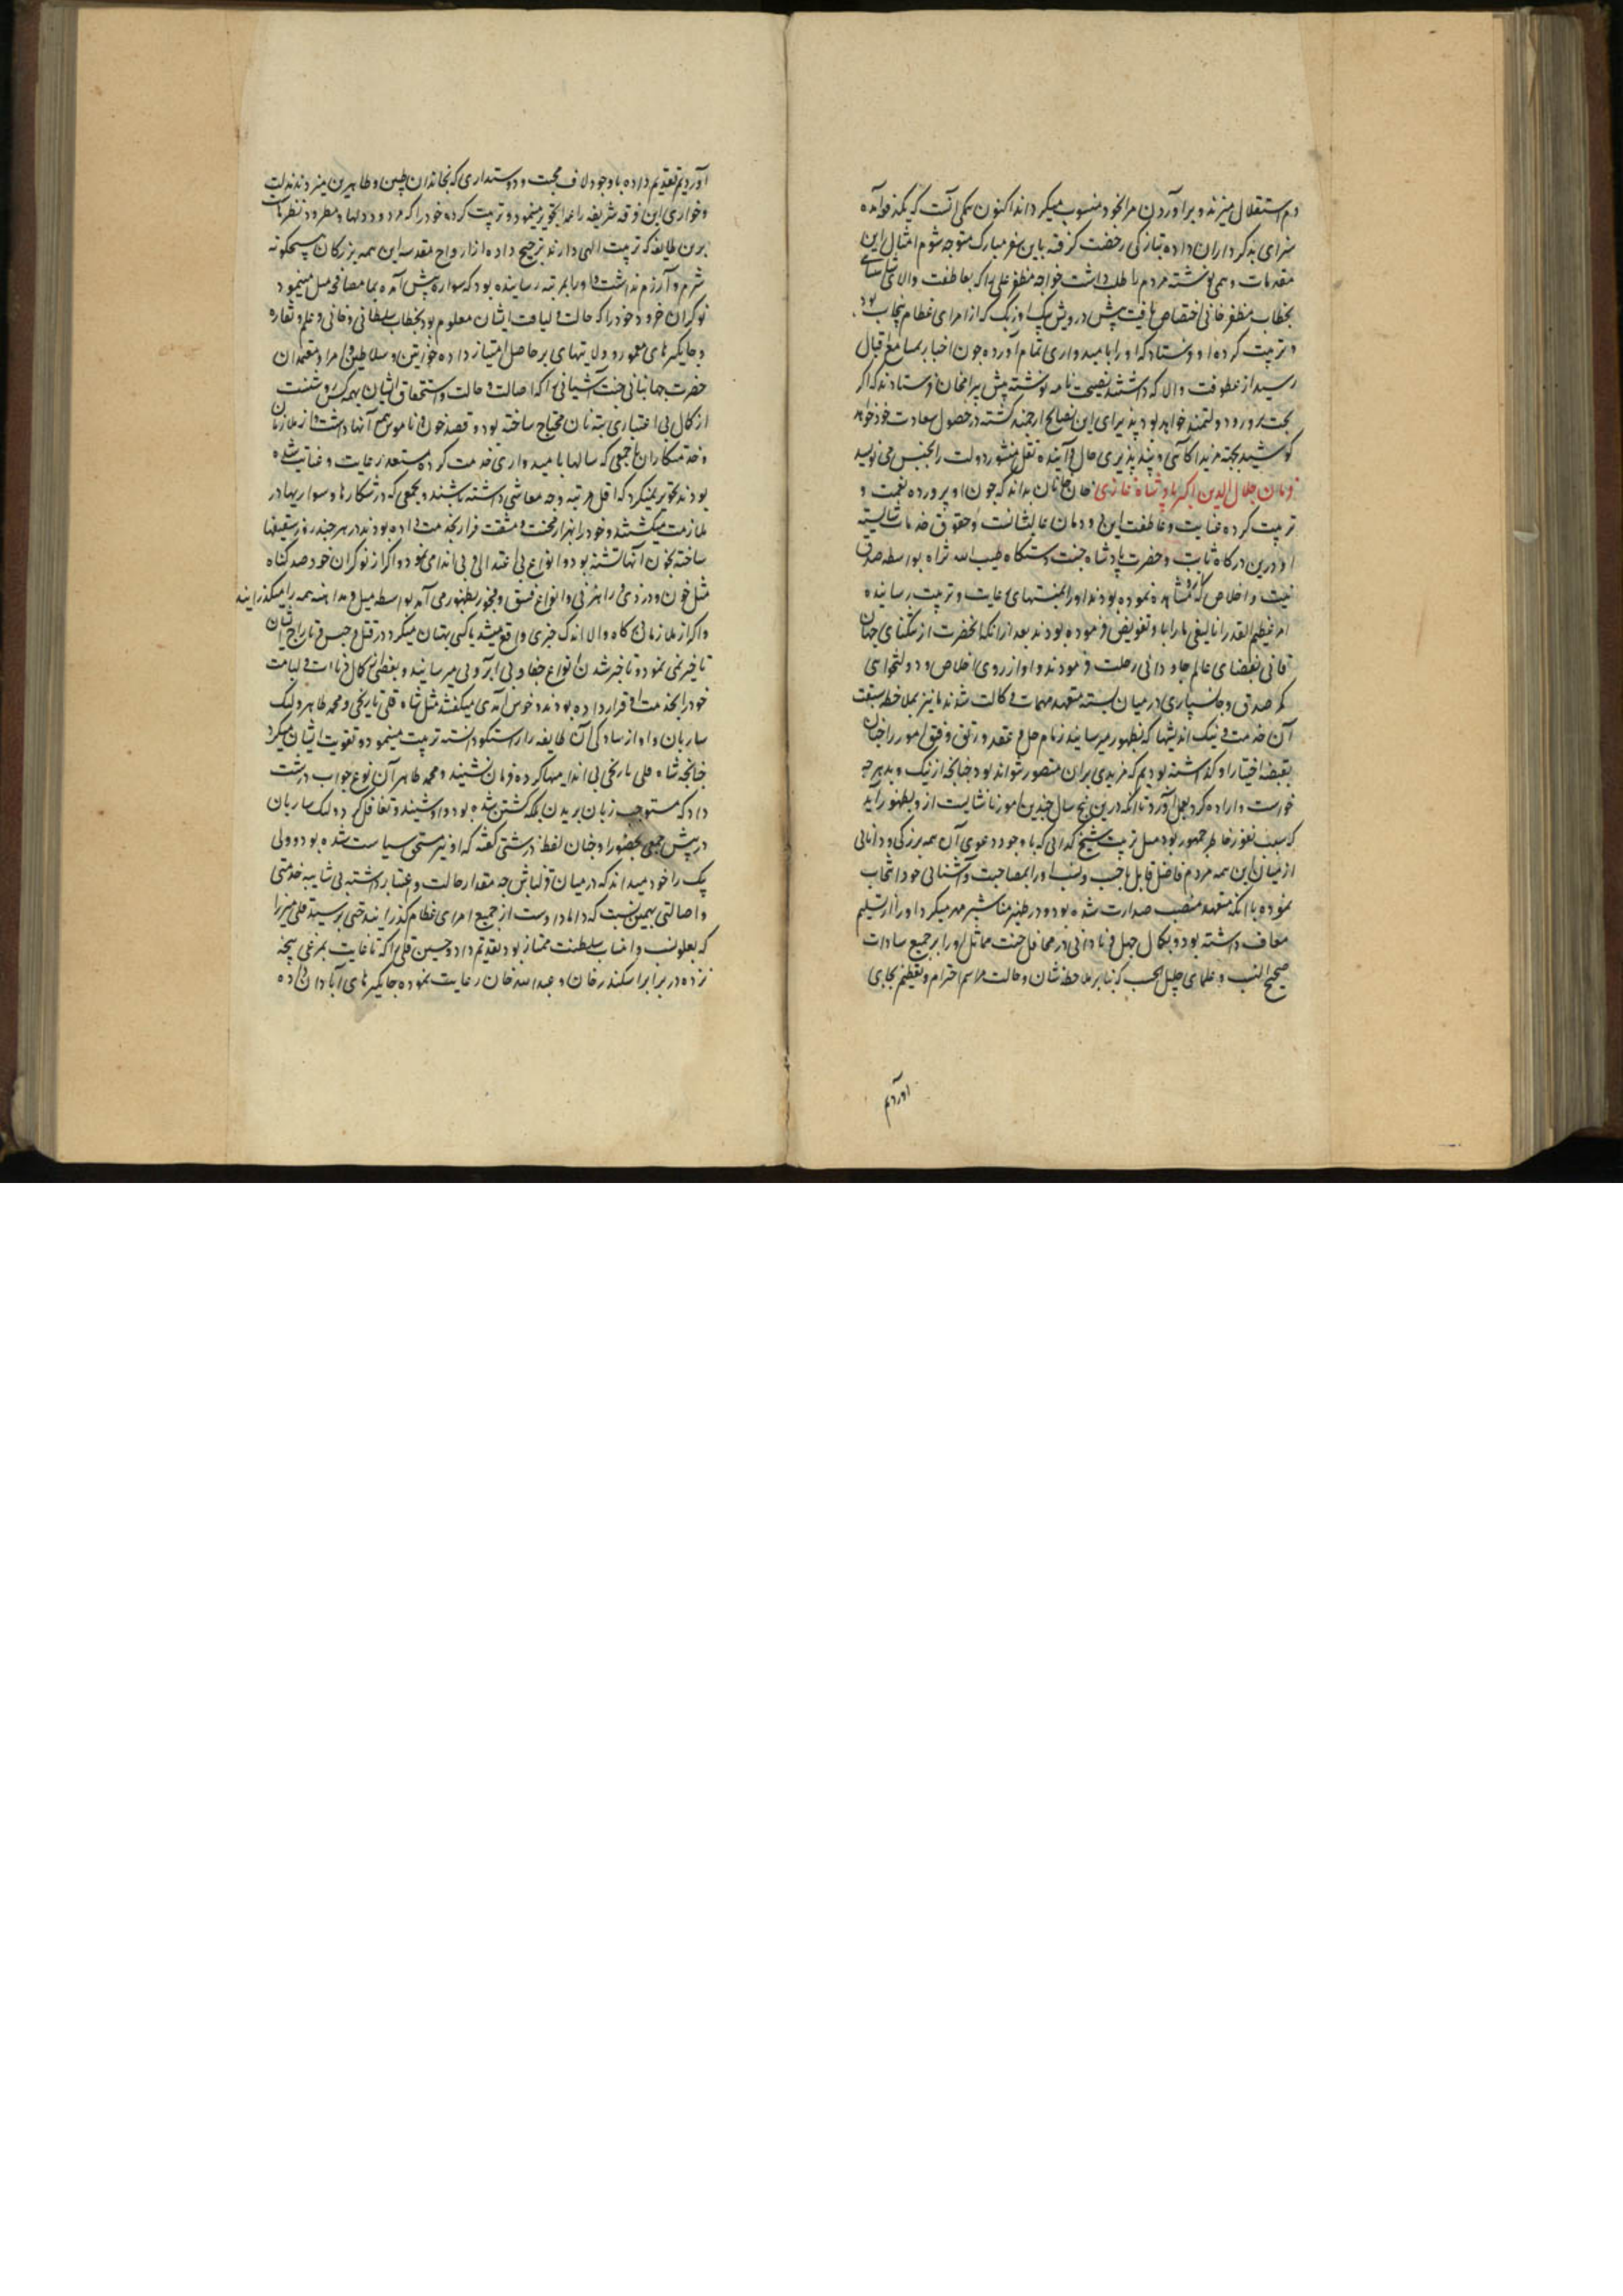 دم استقلال میزند و برآوردن مرا بخود منسوب میگرداند اکنون همگی آنست که یکدفعه آمده
سزای بدکرداران داده بتازگی رخصت گرفته باین سفر مبارک متوجه شوم امثال این
مقدمات و همی نوشته مردم را طلب داشت خواجه مظفر علی را که بعاطفت والای شاهنشاهی
بخطاب مظفر خانی اختصاص یافت پیش درویش بیک اوزبک که از امرای عظام پنجاب بود
و تربیت کرده او فرستاد که او را بامیدواری تمام آورد چون اخبار بمسامع اقبال
رسید از عطوفت والا که داشتند نصیحت نامه نوشته پیش بیرامخان فرستادند که اگر
بخت برورد و دولتمند خواهد بود پذیرای این نصایح ارجمند گشته در حصول سعادت خود خواهد
کوشید بجهة مزید آگاهی و پندپذیری حال و آینده نقل منشور دولت را بجنس می نویسد
فرمان جلال الدین اکبر پادشاه غازی خان خانان بداند که چون او پرورده نعمت و
تربیت کرده عنایت و عاطفت این دودمان عالیشانست و حقوق خدمات شایسته
او درین درگاه ثابت و حضرت پادشاه جنت دستگاه طیب الله ثراه بواسطه صدق
نیت و اخلاص که ازو مشاهده نموده بودند او را بمنتهای رعایت و تربیت رسانیده
امر عظیم القدر اتالیقی ما را باو تفویض فرموده بودند بعد از آنکه آنحضرت از تنگنای جهان
فانی بفضای عالم جاودانی رحلت فرمودند و او از روی اخلاص و دولتخواهی
کمر صدق و جانسپاری در میان بسته متعهد مهمات وکالت شد ما نیز بملاحظه سبقت
آن خدمت و نیک اندیشیها که بظهور میرسانید زمام حل و عقد و رتق و فتق امور را چنان
بقبضه اختیار او گذاشته بودیم که مزیدی بران متصور نتواند بود چنانچه از نیک و بد هرچه
خواست و اراده کرد بعمل آورد تا آنکه درین پنج سال چندین امور ناشایست از و بظهور آمد
که سبب نفور خاطر جمهور بود مثل تربیت شیخ گدائی که با وجود دعوی آن همه بزرگی و دانائی
از میان این همه مردم فاضل قابل با حسب و نسب او را بمصاحبت و آشنائی خود انتخاب
نموده با آنکه متعهد منصب صدارت شده بود و در ظهر مناشیر مهر میکرد او را از تسلیم
معاف داشته بود و بکمال جهل و نادانی در محافل جنت مماثل او را بر جمیع سادات
صحیح النسب و علمای جلیل الحسب که بنابر ملاحظه شان و حالت مراسم احترام و تعظیم بجای
آوردیم
آوردیم تقدیم داده با وجود لاف محبت و دوستداری که بخاندان طیبین و طاهرین میزد مذلت
و خواری این فرقه شریفه را عمدا تجویز مینمود و تربیت کرده خود را که مردود دلها و مطرود نظرهاست
برین طایفه که تربیت الهی دارند ترجیح داده از ارواح مقدسه این همه بزرگان هیچگونه
شرم و آزرم نداشت و او را بمرتبه رسانیده بود که سواره پیش آمده بما مصافحه میل مینمود
نوکران خرد خود را که حالت و لیاقت ایشان معلوم بود بخطاب سلطانی و خانی و علم و نقاره
و جایگیرهای معمور و ولایتهای پرحاصل امتیاز داده خوانین و سلاطین و امرا و معتمدان
حضرت جهانبانی جنت آشیانی را که اصالت و حالت و استحقاق ایشان بهمه کس روشنست
از کمال بی اعتباری بته نان محتاج ساخته بود و قصد خون و ناموس جمع آنها داشت و از ملازمان
و خدمتکاران ما جمعی که سالها بامیدواری خدمت کرده مستعد رعایت و عنایت شده
بودند تجویز نمیکرد که اقل مرتبه وجه معاشی داشته باشند و بجمعی که در شکارها و سواریها در
ملازمت میگشتند و خود را بهزار محنت و مشقت قرار بخدمت داده بودند در هر چند روز سقیفها
ساخته بخون آنها تشنه بود و انواع بی اعتدالی و بی اندامی نمود و اگر از نوکران خود صد گناه
مثل خون و دزدی و راهزنی و انواع فسق و فجور بظهور می آمد بواسطه میل و مداهنه همه را میگذرانید
و اگر از ملازمان درگاه والا اندک چیزی واقع میشد یا کسی بهتان میکرد در قتل و حبس و تاراج ایشان
تاخیر نمی نمود و تا خبر شدن انواع جفا و بی آبروئی میرسانید و بعضی که کمال دنائت و لئامت
خود را بخدمت او قرار داده بودند و خوش آمدی میگفتند مثل شاه قلی نارنجی و محمد طاهر و لنک
ساربان و او از سادگی آن طایفه را راستگو دانسته تربیت مینمود و تقویت ایشان میکرد
چنانچه شاه قلی نارنجی بی اندامیها کرده فرمان نشنید و محمد طاهر آن نوع جواب درشت
داد که مستوجب زبان بریدن بلکه کشتن شده بود و او شنید و تغافل کرد و لنک ساربان
در پیش جمعی بحضور او چنان لفظ درشتی گفته که او نیز مستحق سیاست شده بود و ولی
بیک را خود میداند که در میان قزلباش چه مقدار حالت و اعتبار داشته بی شایبه خدمتی
و اصالتی بهمین نسبت که داماد اوست از جمیع امرای عظام گذرانید حتی بر سید قلی میرزا
که بعلو نسب و انتساب سلطنت ممتاز بود تقدیم داد و حسین قلی را که تا غایت بمرغی پنجه
نزده در برابر اسکندر خان و عبدالله خان رعایت نموده جایگیرهای آبادان داده